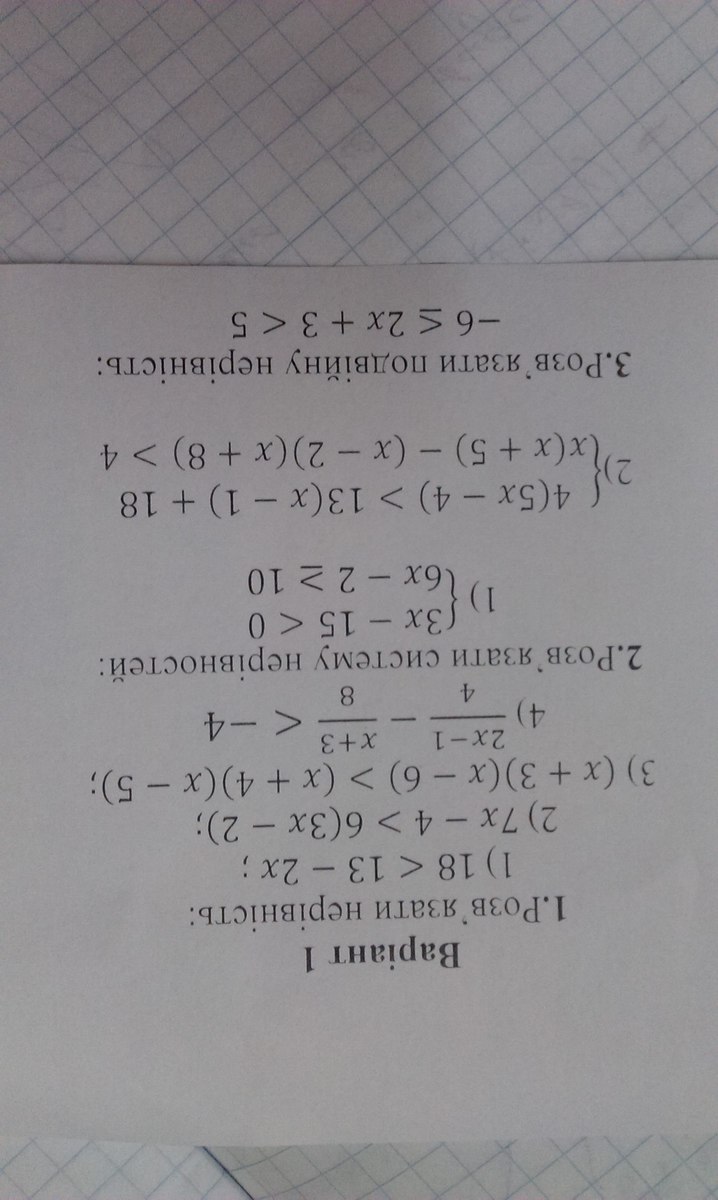 Варіант 1
1.Розв'язати нерівність:
1) 18 < 13 − 2x ;
2) 7x − 4 > 6(3x − 2);
3) (x + 3)(x − 6) > (x + 4)(x − 5);
4) (2x−1)/4 − (x+3)/8 < −4
2.Розв'язати систему нерівностей:
1) { 3x − 15 < 0
6x − 2 ≥ 10
2) { 4(5x − 4) > 13(x − 1) + 18
x(x + 5) − (x − 2)(x + 8) > 4
3.Розв'язати подвійну нерівність:
−6 ≤ 2x + 3 < 5